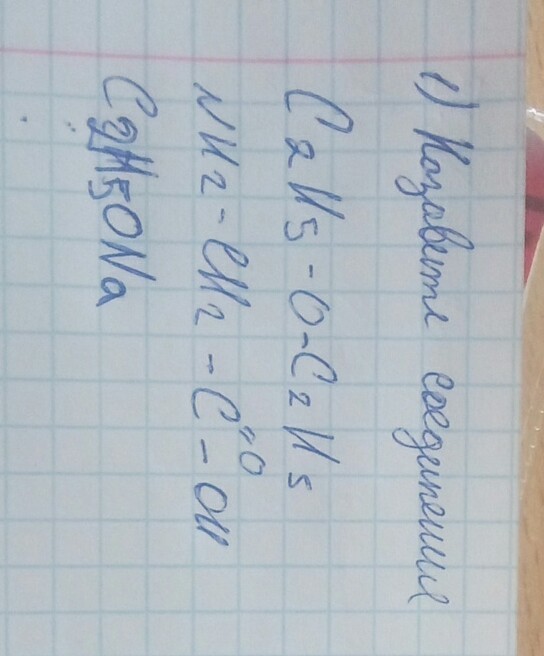 1) Назовите соединения
C2H5-O-C2H5
NH2-CH2-C=O-OH
C2H5ONa